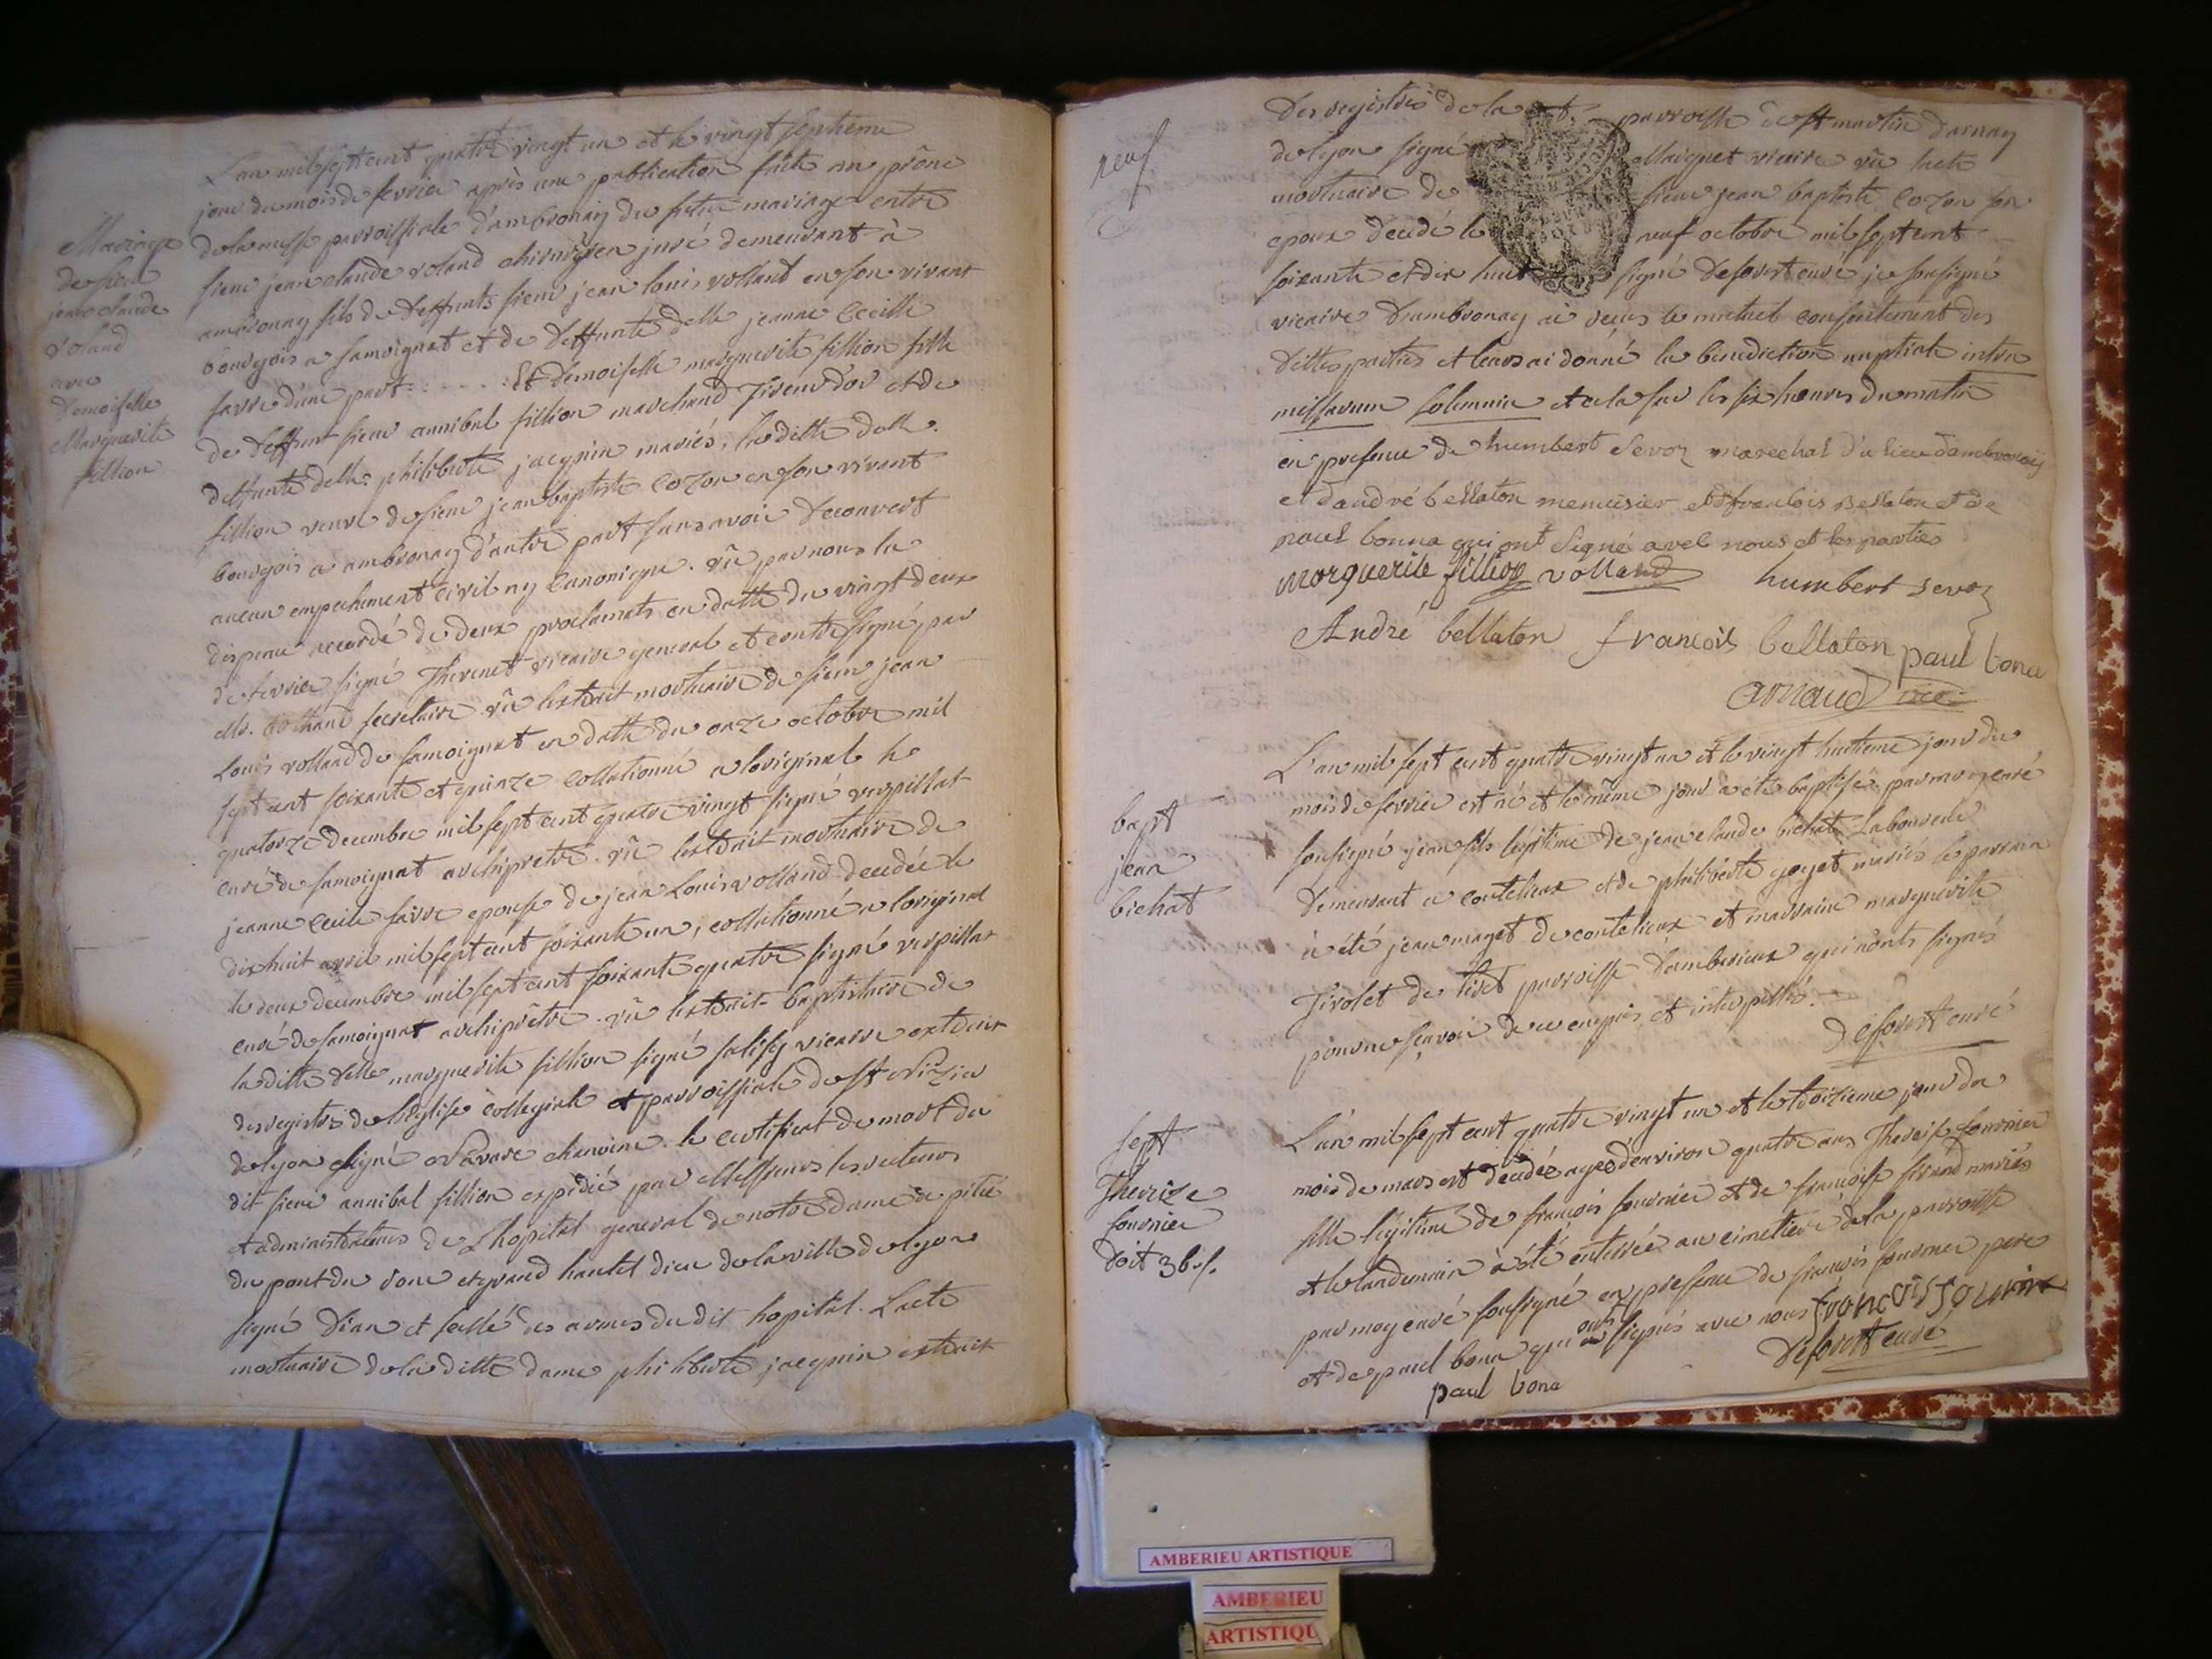 Mariage
de sieur
jean claude
roland
avec
Demoiselle
Marguerite
fillion
L'an mil sept cent quatre vingt un et le vingt septieme
jour du mois de fevrier après une publication faite au prône
de la messe parroissiale d'ambronay du futur mariage entre
sieur jean claude roland chirurgien juré demeurant à
ambronay fils de deffunts sieur jean louis rolland en son vivant
bourgois a samoignat et de deffunte delle jeanne Cecille
favre d'une part. . . . . . Et demoiselle marguerite fillion fille
de deffunt sieur annibal fillion marchand Tireur d'or et de
deffunte delle philiberte jacquin mariés, la ditte delle
fillion veuve de sieur jean baptiste Cozon en son vivant
bourgois a ambronay d'autre part sans avoir decouvert
aucun empechement civil ny canonique. vû par nous la
dispense accordé de deux proclamats en datte du vingt deux
de fevrier signé Thevenet vicaire general et contre signé par
secretaire vû l'extrait mortuaire de sieur jean
Louis rolland de samoignat en datte du onze octobre mil
sept cent soixante et quinze collationné a l'original le
quatorze decembre mil sept cent quatre vingt signé verpillat
curé de samoignat archiprêtre. vû l'extrait mortuaire de
jeanne Cecile favre epouse de jean Louis rolland decedée le
dixhuit avril mil sept cent soixante un, collationné a l'original
le deux decembre mil sept cent soixante quatre signé verpillat
curé de samoignat archiprêtre. vû l'extrait baptistaire de
la ditte delle marguerite fillion signé vicaire extrait
des registres de l'Eglise collegiale et parroissiale de st Nizier
de lyon signé Navare chanoine. le certificat de mort du
dit sieur annibal fillion expédié par Messieurs les recteurs
et administrateurs de L'hopital general de notre dame de pitié
du pont du rone et grand hautel dieu de la ville de lyon
signé Dian et scellé des armes du dit hopital. L'acte
mortuaire de la ditte dame philiberte jacquin extrait
neuf
des registres de la parroisse de st martin d'ainay
de lyon signé Maignet vicaire vû l'acte
mortuaire de sieur jean baptiste Cozon son
epoux décédé le neuf octobre mil sept cent
soixante et dix huit signé deforest curé je soussigné
vicaire d'ambronay ai recus le mutuel consentement des
dittes parties et leurs ai donné la benediction nuptiale intra
missarum solemnia et cela sur les six heures du matin
en presence de humbert Sevoz marechal du lieu d'ambronay
et d'andré bellaton menuisier et de francois Bellaton et de
paul bonna qui ont signé avec nous et les parties
marguerite fillion rolland humbert sevoz
André bellaton francois ballaton paul bona
arnaud vic.
bapt
jean
bichat
L'an mil sept cent quatre vingt un et le vingt huitieme jour du
mois de fevrier est né et le même jour a été baptisé par moy curé
soussigné jean fils légitime de jean claude bichat Laboureur
demeurant a coutelieux et de philiberte goyet mariés le parrain
à été jean maget de coutelieux et marraine marguerite
Tirolet de tiret parroisse d'amberieux qui n'ont signés
pour ne sçavoir de ce enquis et interpellés.
deforest curé
sept
Thereze
fournier
doit 3 b. s.
L'an mil sept cent quatre vingt un et le troizieme jour du
mois de mars est decedée agée d'environ quatre ans Thereise fournier
fille légitime de francois fournier et de francoise ferrand mariés
et le landemain à été enterrée au cimetiere de la parroisse
par moy curé soussigné en presence de francois fournier pere
et de paul bona qui ont signés avec nous francois fournier
paul bona deforest curé
AMBERIEU ARTISTIQUE
AMBERIEU
ARTISTIQU